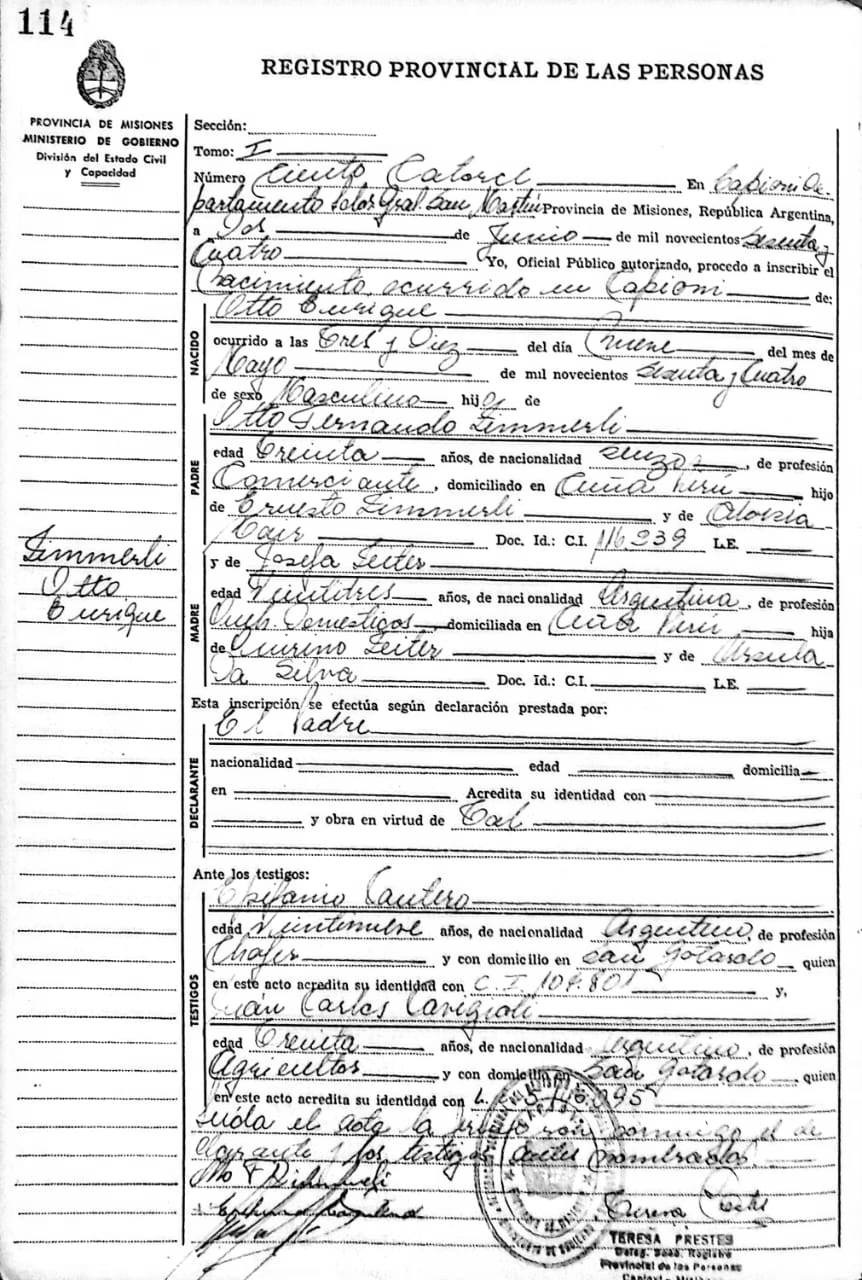 114
REGISTRO PROVINCIAL DE LAS PERSONAS
PROVINCIA DE MISIONES
MINISTERIO DE GOBIERNO
División del Estado Civil
y Capacidad
Sección:
Tomo: I
Número Ciento Catorce En Capioni De-
partamento Gral. San Martín Provincia de Misiones, República Argentina,
a Dos de Junio de mil novecientos Sesenta y
Cuatro Yo, Oficial Público autorizado, procedo a inscribir el
Nacimiento ocurrido en Capioni de:
NACIDO
Otto Enrique
ocurrido a las Tres y Diez del día Nueve del mes de
Mayo de mil novecientos Sesenta y Cuatro
de sexo Masculino hijo de
PADRE
Otto Fernando Zimmerli
edad Treinta años, de nacionalidad Suizo, de profesión
Comerciante, domiciliado en Cuña Perú hijo
de Ernesto Zimmerli y de Aloisia
Mair Doc. Id.: C.I. 116.939 L.E.
y de Josefa Leiter
MADRE
edad Veintitres años, de nacionalidad Argentina, de profesión
Queh. Domesticos domiciliada en Cuña Perú hija
de Quirino Leiter y de Ursula
Da Silva Doc. Id.: C.I. L.E.
Zimmerli
Otto
Enrique
Esta inscripción se efectúa según declaración prestada por:
El Padre
DECLARANTE
nacionalidad edad domicilia
en Acredita su identidad con
y obra en virtud de Tal
Ante los testigos:
TESTIGOS
Epifanio
edad Veintinueve años, de nacionalidad Argentino, de profesión
Chofer y con domicilio en San Gotardo quien
en este acto acredita su identidad con C. I. 108.801 y,
Juán Carlos
edad Treinta años, de nacionalidad Argentino, de profesión
Agricultor y con domicilio en San Gotardo, quien
en este acto acredita su identidad con L.
Leída el acta la firman conmigo el de
clarante y los testigos antes nombrados.
TERESA PRESTES
Deleg. Secc. Registro
Provincial de las Personas